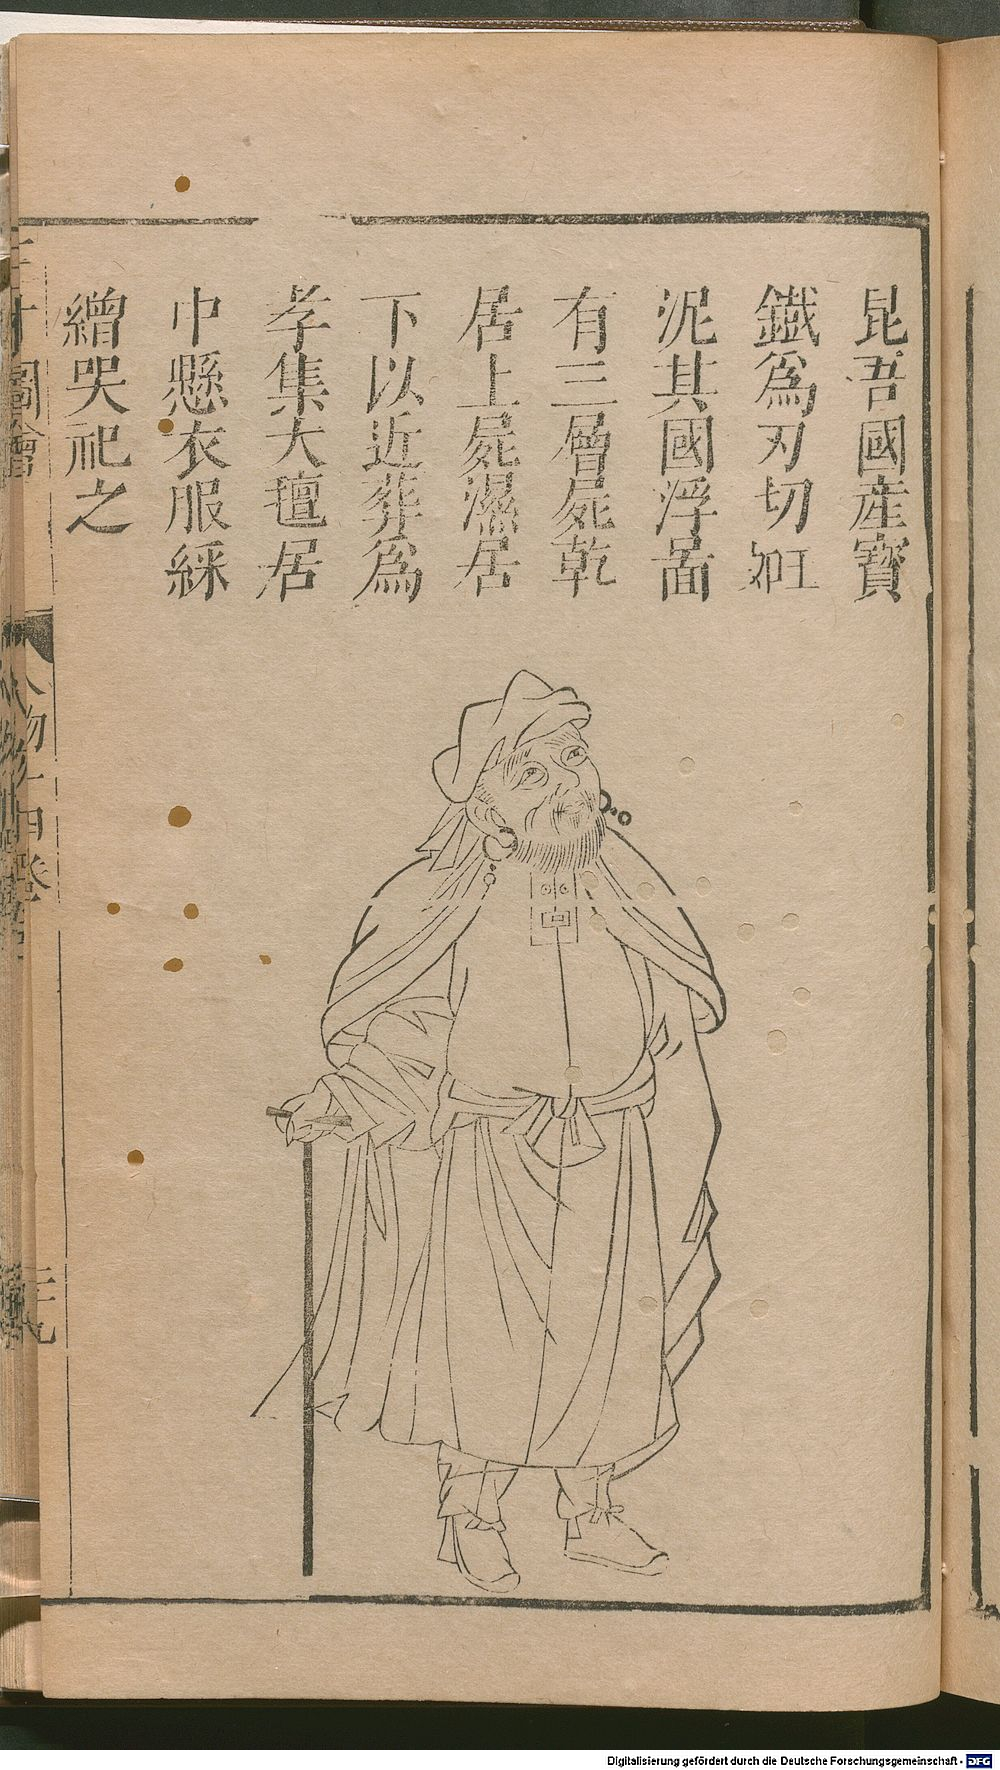 昆吾國產寶
鐵爲刃切玉如
泥其國浮啚
有三層屍乾
居上屍濕居
下以近葬爲
孝集大氊居
中懸衣服綵
繒哭祀之
三才圖會
人物十四卷
Digitalisierung gefördert durch die Deutsche Forschungsgemeinschaft - DFG